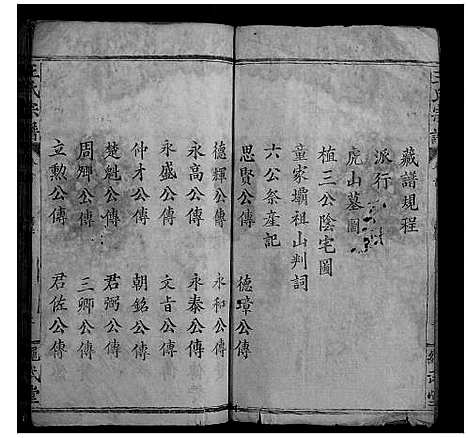 藏譜規程
派行
虎山墓圖
植三公陰宅圖
童家壩祖山判詞
六公祭產記
思賢公傳 德璋公傳
德輝公傳 永和公傳
永高公傳 永泰公傳
永盛公傳 文旨公傳
仲才公傳 朝銘公傳
楚魁公傳 君弼公傳
周卿公傳 三卿公傳
立勲公傳 君佐公傳
王氏宗譜
繩武堂